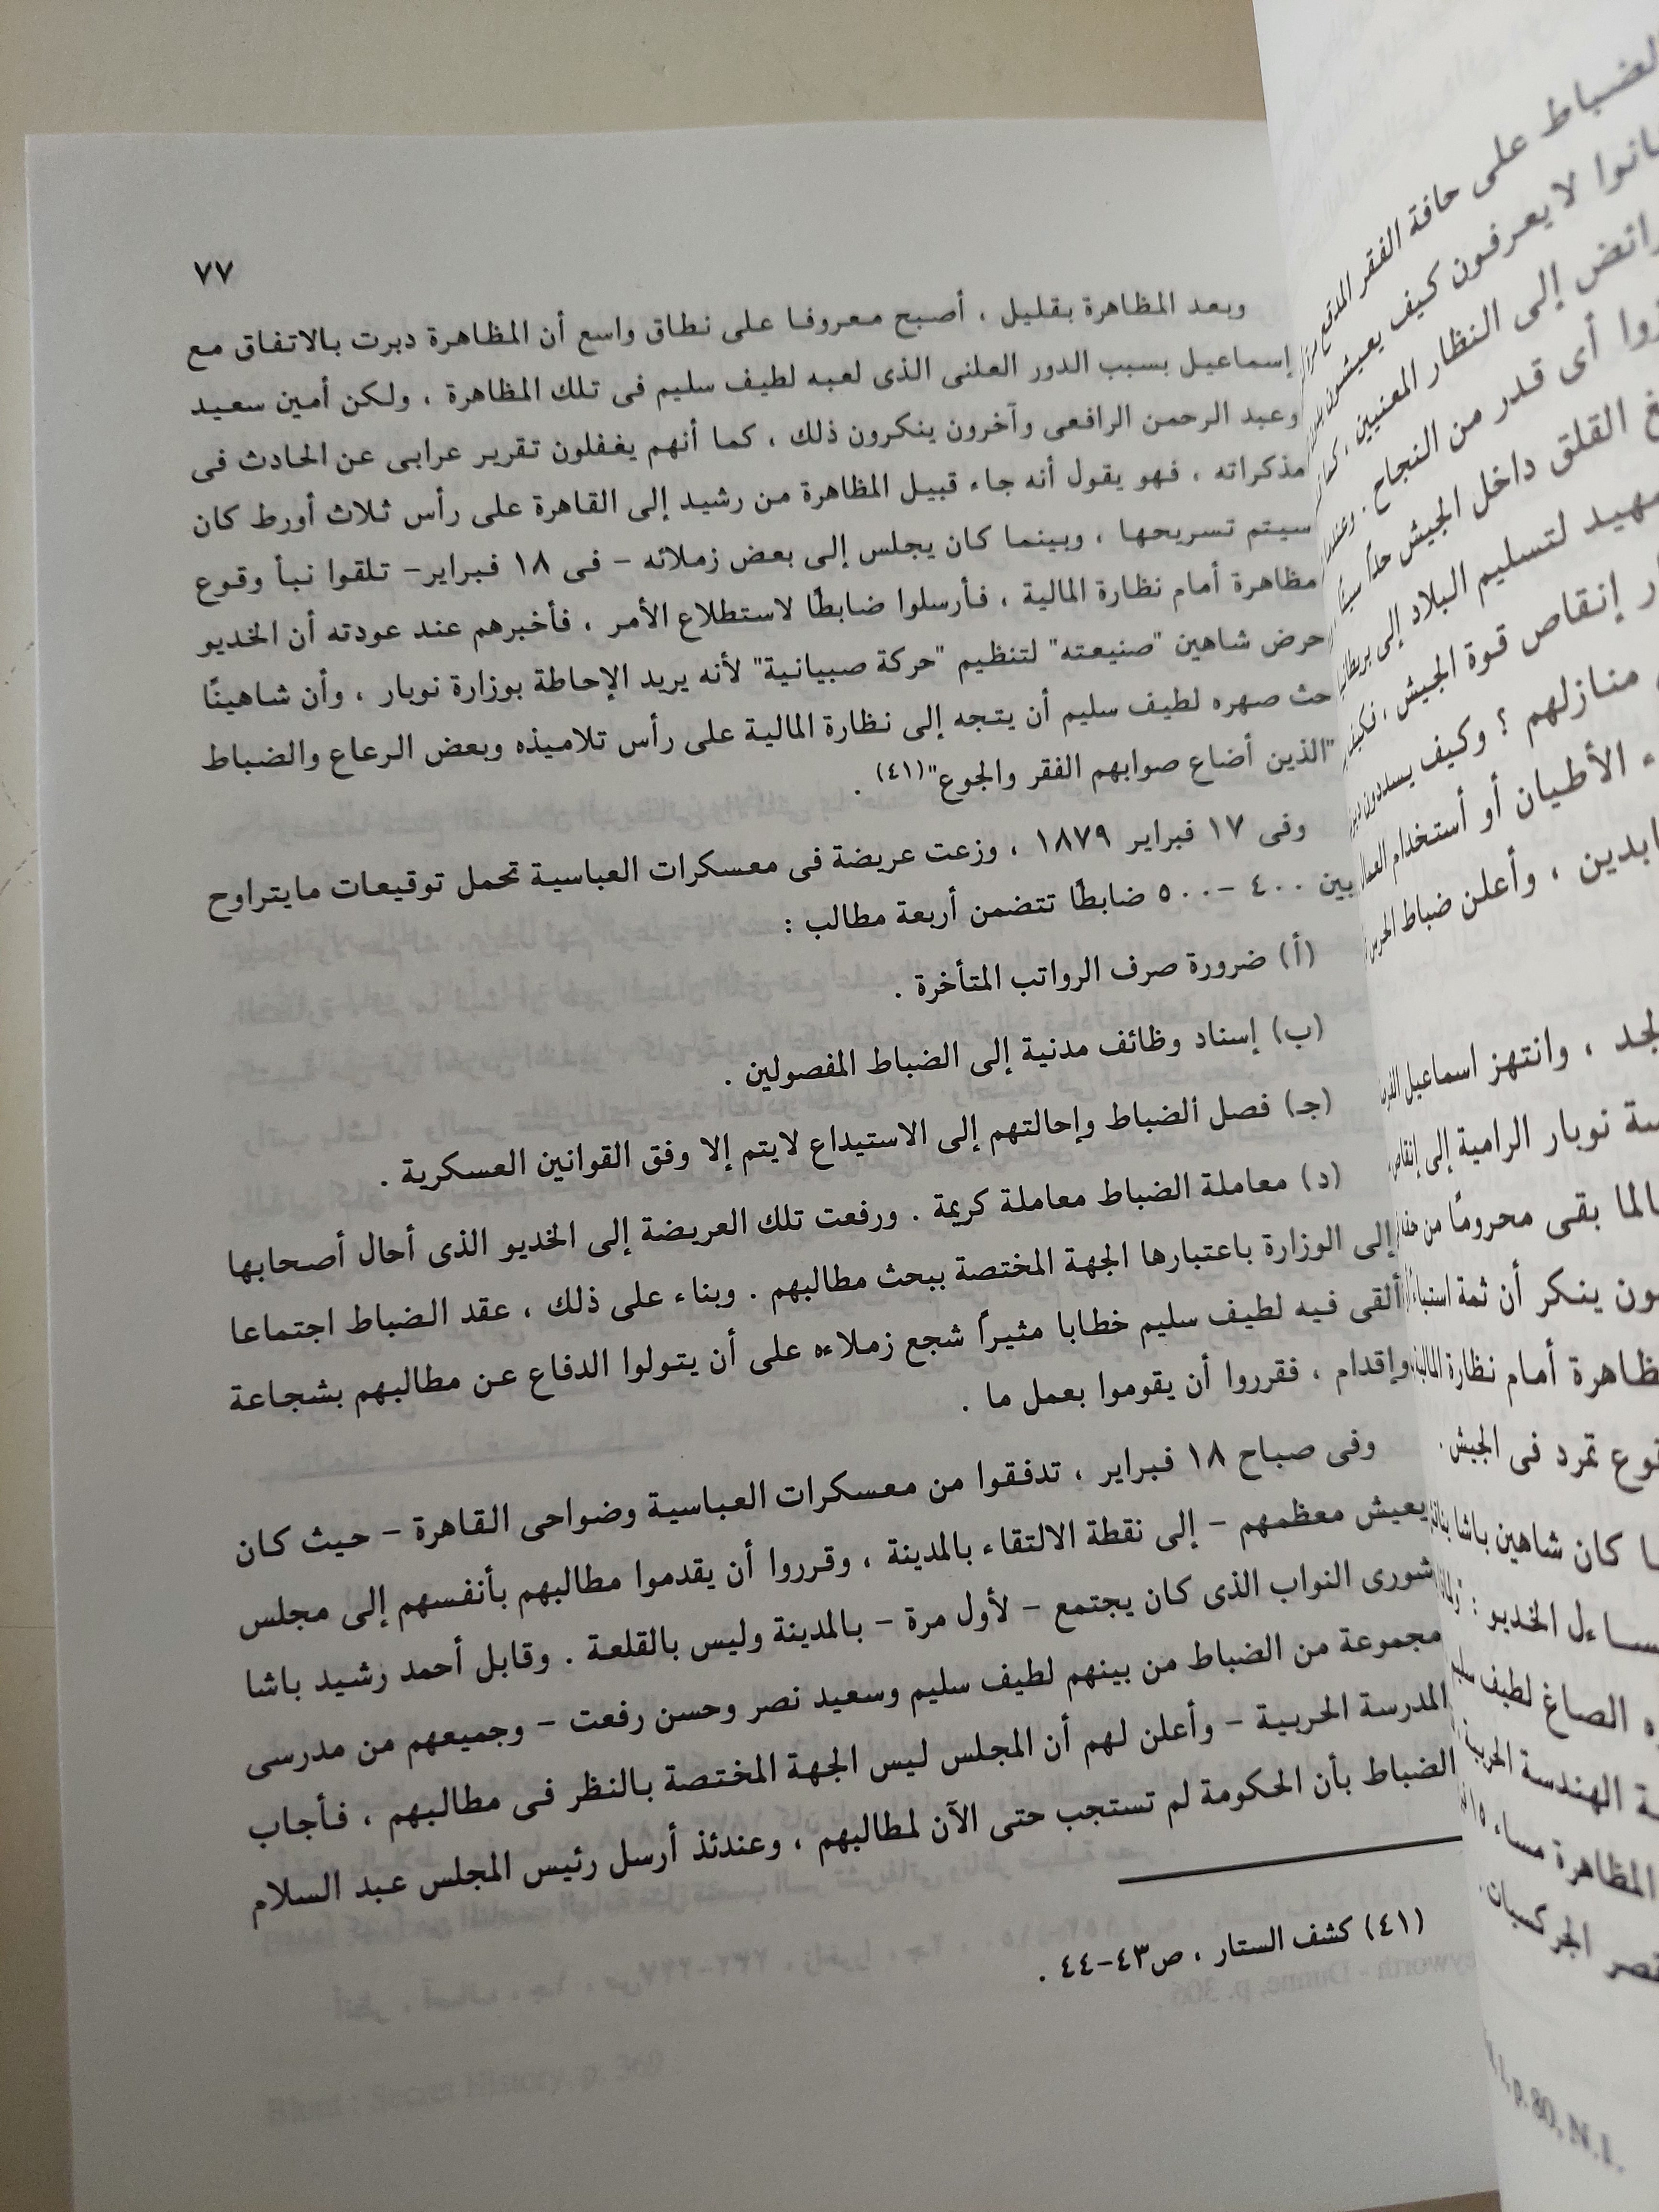 ٧٧
وبعد المظاهرة بقليل ، أصبح معروفا على نطاق واسع أن المظاهرة دبرت بالاتفاق مع
إسماعيل بسبب الدور العلنى الذى لعبه لطيف سليم فى تلك المظاهرة ، ولكن أمين سعيد
وعبد الرحمن الرافعى وآخرون ينكرون ذلك ، كما أنهم يغفلون تقرير عرابى عن الحادث فى
مذكراته ، فهو يقول أنه جاء قبيل المظاهرة من رشيد إلى القاهرة على رأس ثلاث أورط كان
سيتم تسريحها ، وبينما كان يجلس إلى بعض زملائه – فى ١٨ فبراير– تلقوا نبأ وقوع
مظاهرة أمام نظارة المالية ، فأرسلوا ضابطًا لاستطلاع الأمر ، فأخبرهم عند عودته أن الخديو
حرض شاهين "صنيعته" لتنظيم "حركة صبيانية" لأنه يريد الإحاطة بوزارة نوبار ، وأن شاهينًا
حث صهره لطيف سليم أن يتجه إلى نظارة المالية على رأس تلاميذه وبعض الرعاع والضباط
"الذين أضاع صوابهم الفقر والجوع"(٤١) .
وفى ١٧ فبراير ١٨٧٩ ، وزعت عريضة فى معسكرات العباسية تحمل توقيعات مايتراوح
بين ٤٠٠ –٥٠٠ ضابطًا تتضمن أربعة مطالب :
(أ) ضرورة صرف الرواتب المتأخرة .
(ب) إسناد وظائف مدنية إلى الضباط المفصولين .
(جـ) فصل الضباط وإحالتهم إلى الاستيداع لايتم إلا وفق القوانين العسكرية .
(د) معاملة الضباط معاملة كريمة . ورفعت تلك العريضة إلى الخديو الذى أحال أصحابها
إلى الوزارة باعتبارها الجهة المختصة ببحث مطالبهم . وبناء على ذلك ، عقد الضباط اجتماعا
ألقى فيه لطيف سليم خطابا مثيراً شجع زملاءه على أن يتولوا الدفاع عن مطالبهم بشجاعة
وإقدام ، فقرروا أن يقوموا بعمل ما .
وفى صباح ١٨ فبراير ، تدفقوا من معسكرات العباسية وضواحى القاهرة – حيث كان
يعيش معظمهم – إلى نقطة الالتقاء بالمدينة ، وقرروا أن يقدموا مطالبهم بأنفسهم إلى مجلس
شورى النواب الذى كان يجتمع – لأول مرة – بالمدينة وليس بالقلعة . وقابل أحمد رشيد باشا
مجموعة من الضباط من بينهم لطيف سليم وسعيد نصر وحسن رفعت – وجميعهم من مدرسى
المدرسة الحربية – وأعلن لهم أن المجلس ليس الجهة المختصة بالنظر فى مطالبهم ، فأجاب
الضباط بأن الحكومة لم تستجب حتى الآن لمطالبهم ، وعندئذ أرسل رئيس المجلس عبد السلام
(٤١) كشف الستار ، ص٤٣–٤٤ .
الضباط على حافة الفقر المدقع
لا يعرفون كيف يعيشون
إلى النظار المعنيين ، كما
أى قدر من النجاح .
القلق داخل الجيش حداً
لتسليم البلاد إلى
إنقاص قوة الجيش ،
منازلهم ؟ وكيف يسددون
الأطيان أو أستخدام
، وأعلن ضباط
، وانتهز اسماعيل
نوبار الرامية إلى
بقى محرومًا من
ينكر أن ثمة
أمام نظارة
تمرد فى الجيش .
كان شاهين باشا
الخديو :
الصاغ لطيف
الهندسة الحربية
المظاهرة مساء
الجركسيات .
p. 80, N.1.